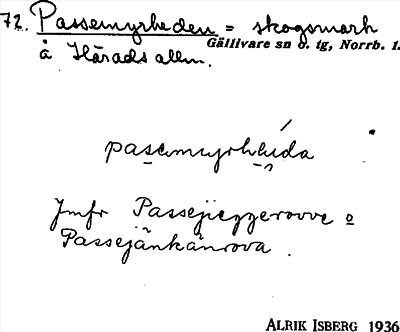 72. Passemyrheden = skogsmark
Gällivare sn o. tg, Norrb. l.
å Härads allm.
pasemyrhɛida
Jmfr Passejieggerovve o
Passejänkänrova.
ALRIK ISBERG 1936